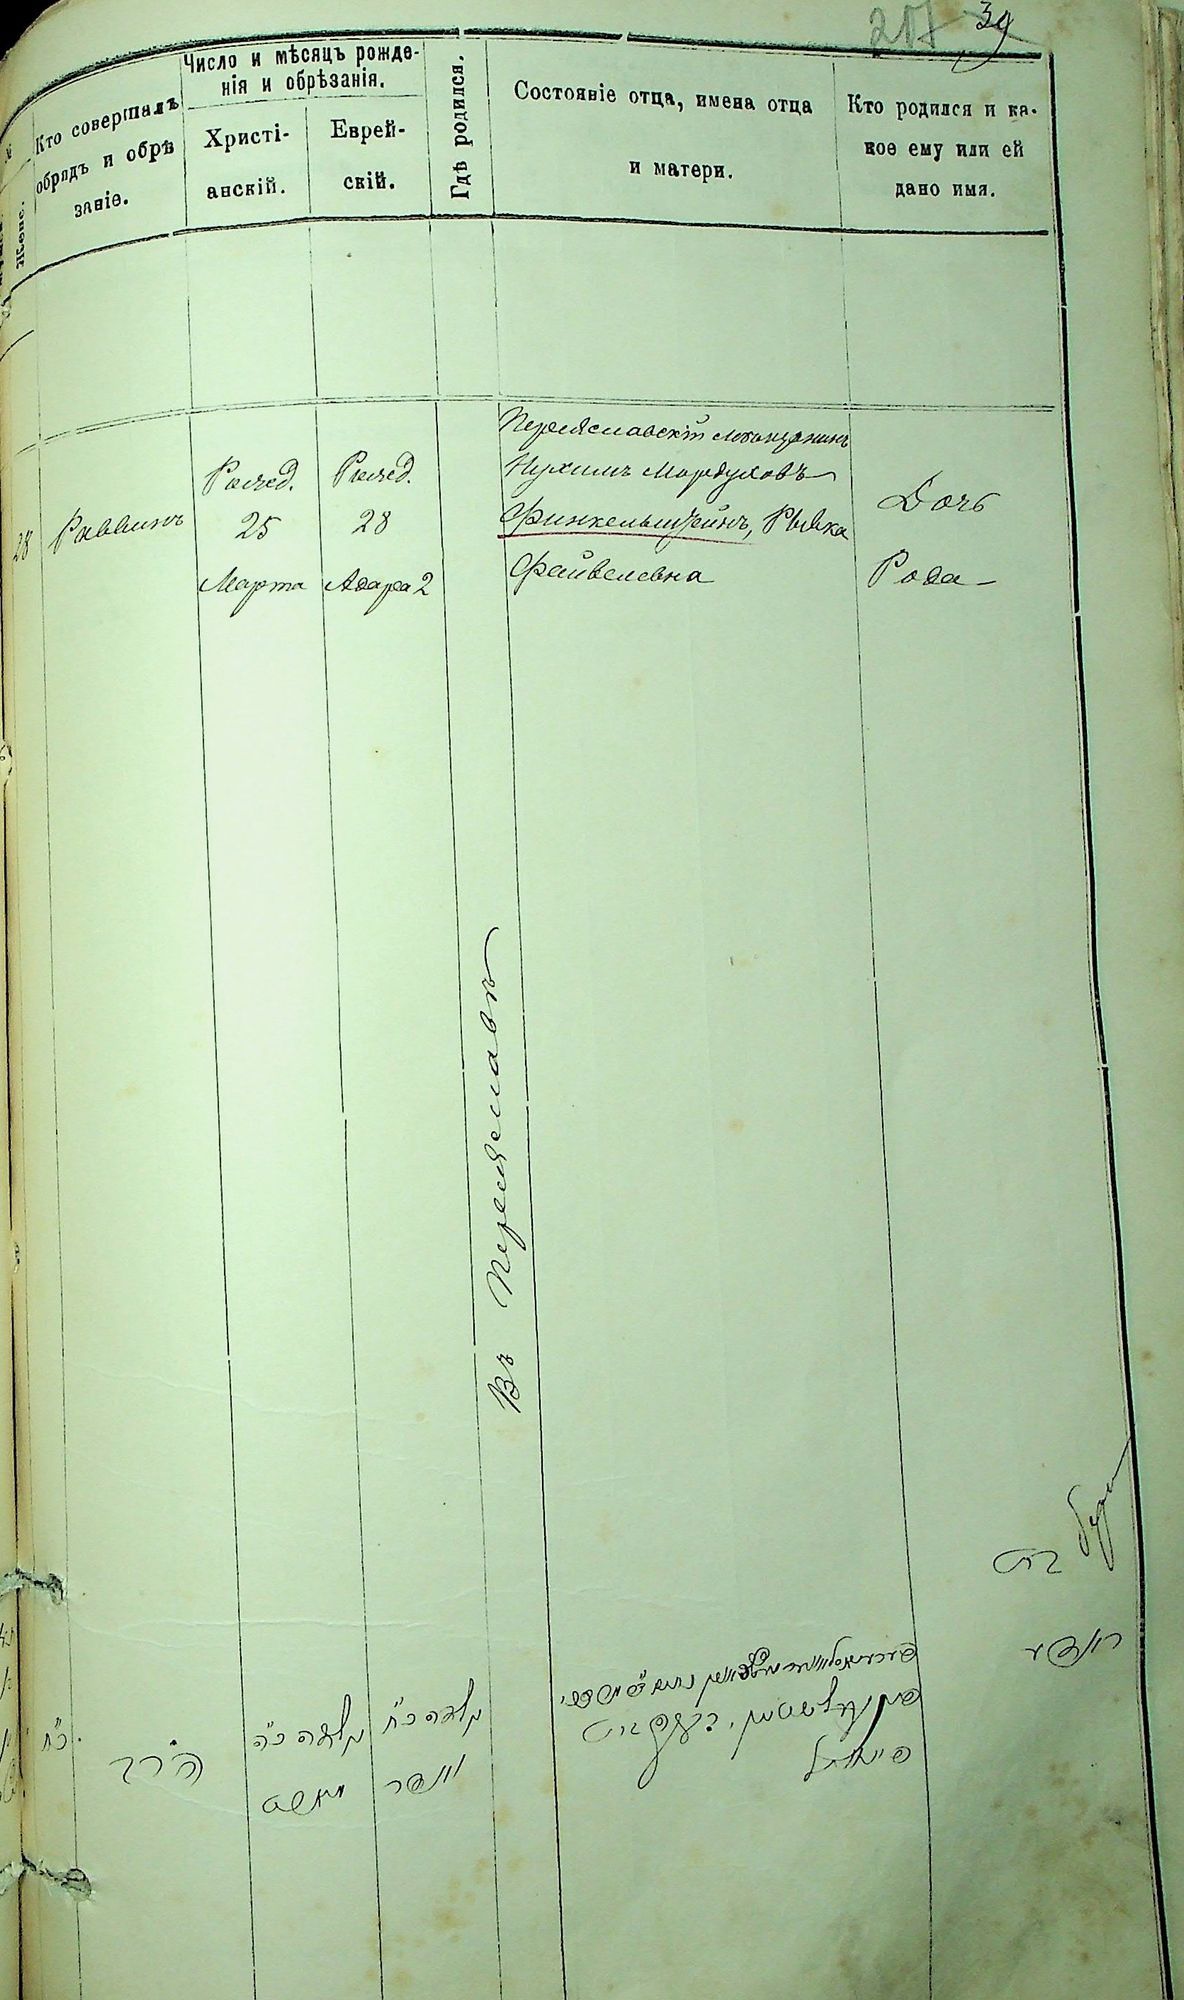 217 39
Жене.
Кто совершалъ
обрядъ и обрѣ
заніе.
Число и мѣсяцъ рожде-
нія и обрѣзанія.
Христі-
анскій.
Еврей-
скій.
Гдѣ родился.
Состояніе отца, имена отца
и матери.
Кто родился и ка-
кое ему или ей
дано имя.
28
Раввинъ
Рожд.
25
Марта
Рожд.
28
Адара 2
Въ Переяславѣ
Переяславскій мѣщанинъ
Нухимъ Мордуховъ
Финкельштейнъ, Рывка
Фейвелевна
Дочь
Рода
כ״ח
הרב
נולדה כ״ה
מארט
נולדה כ״ח
ואדר
פינקעלשטיין, רבקה בת
פייוויל
בת
ראדע